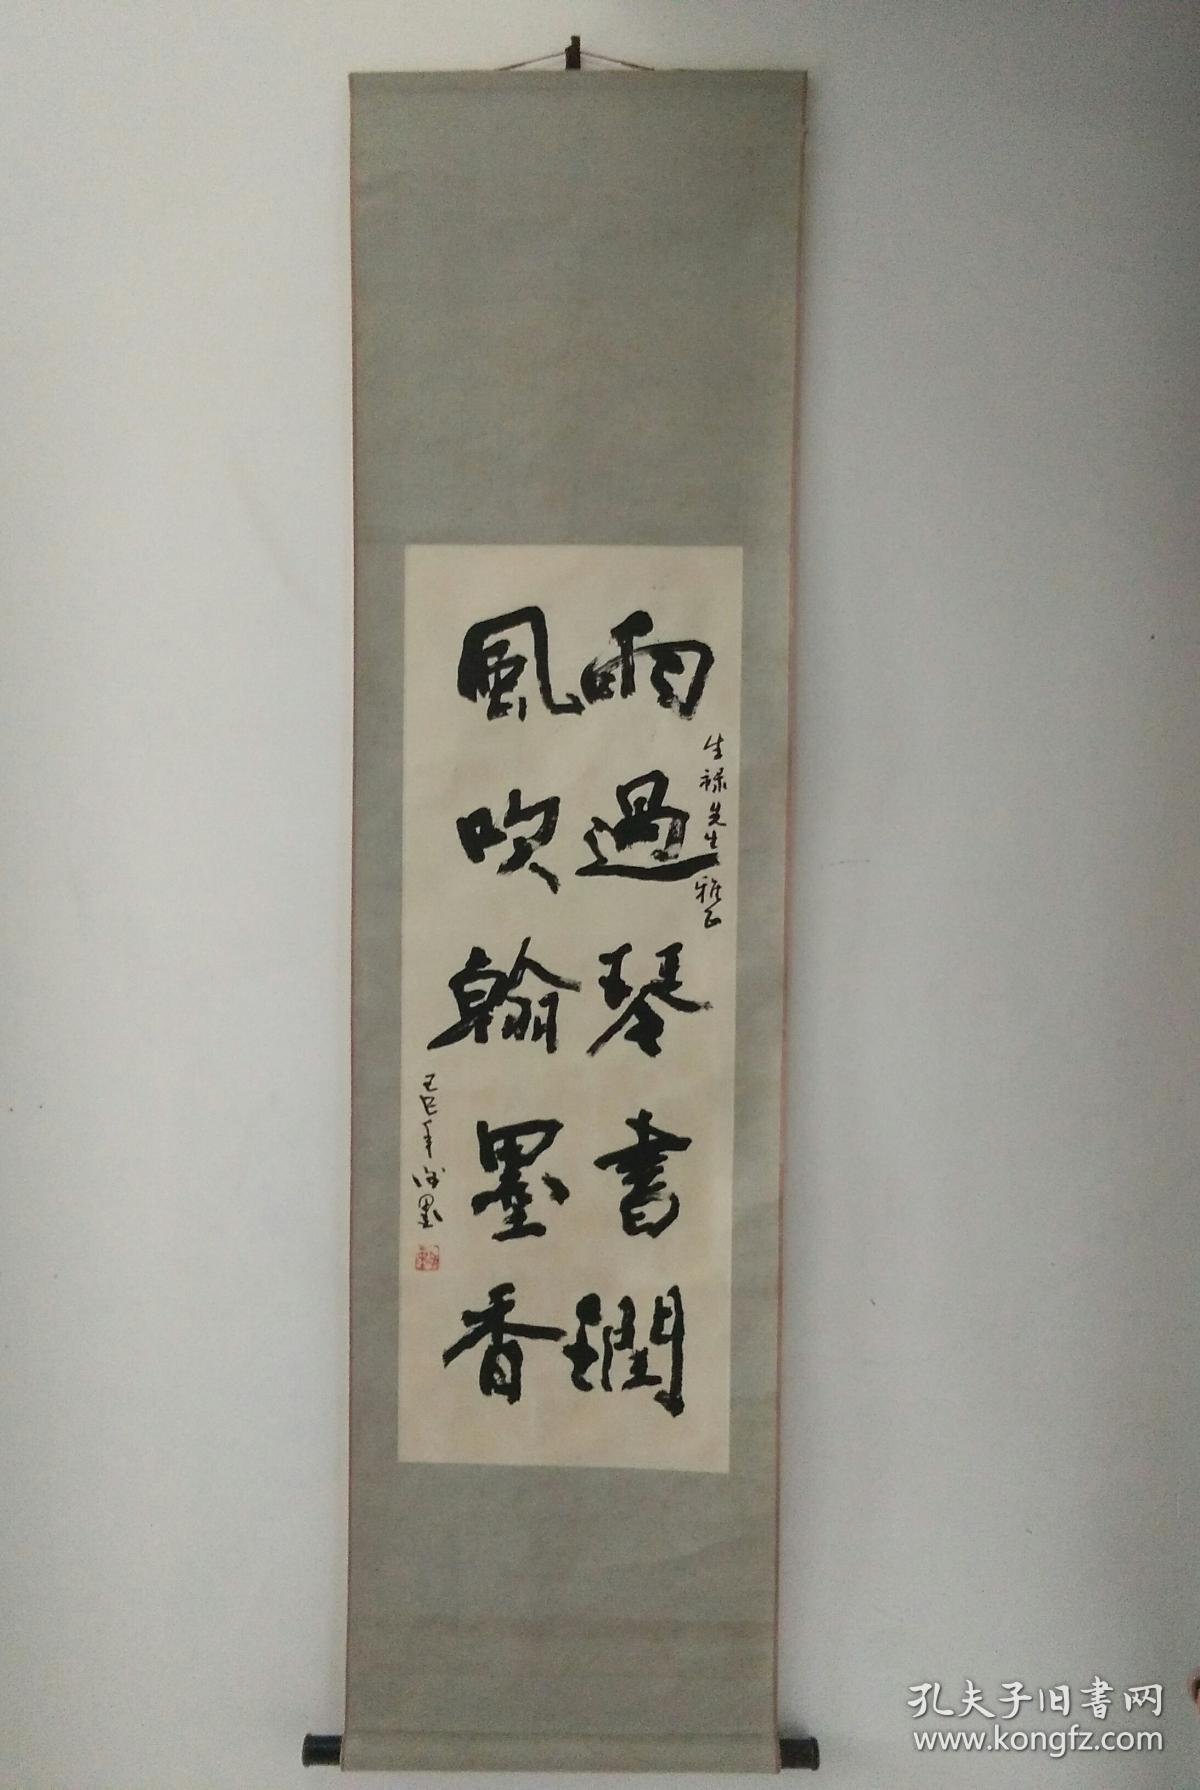 雨過琴書潤
生祿先生雅正
風吹翰墨香
己巳年
墨
孔夫子旧書网
www.kongfz.com